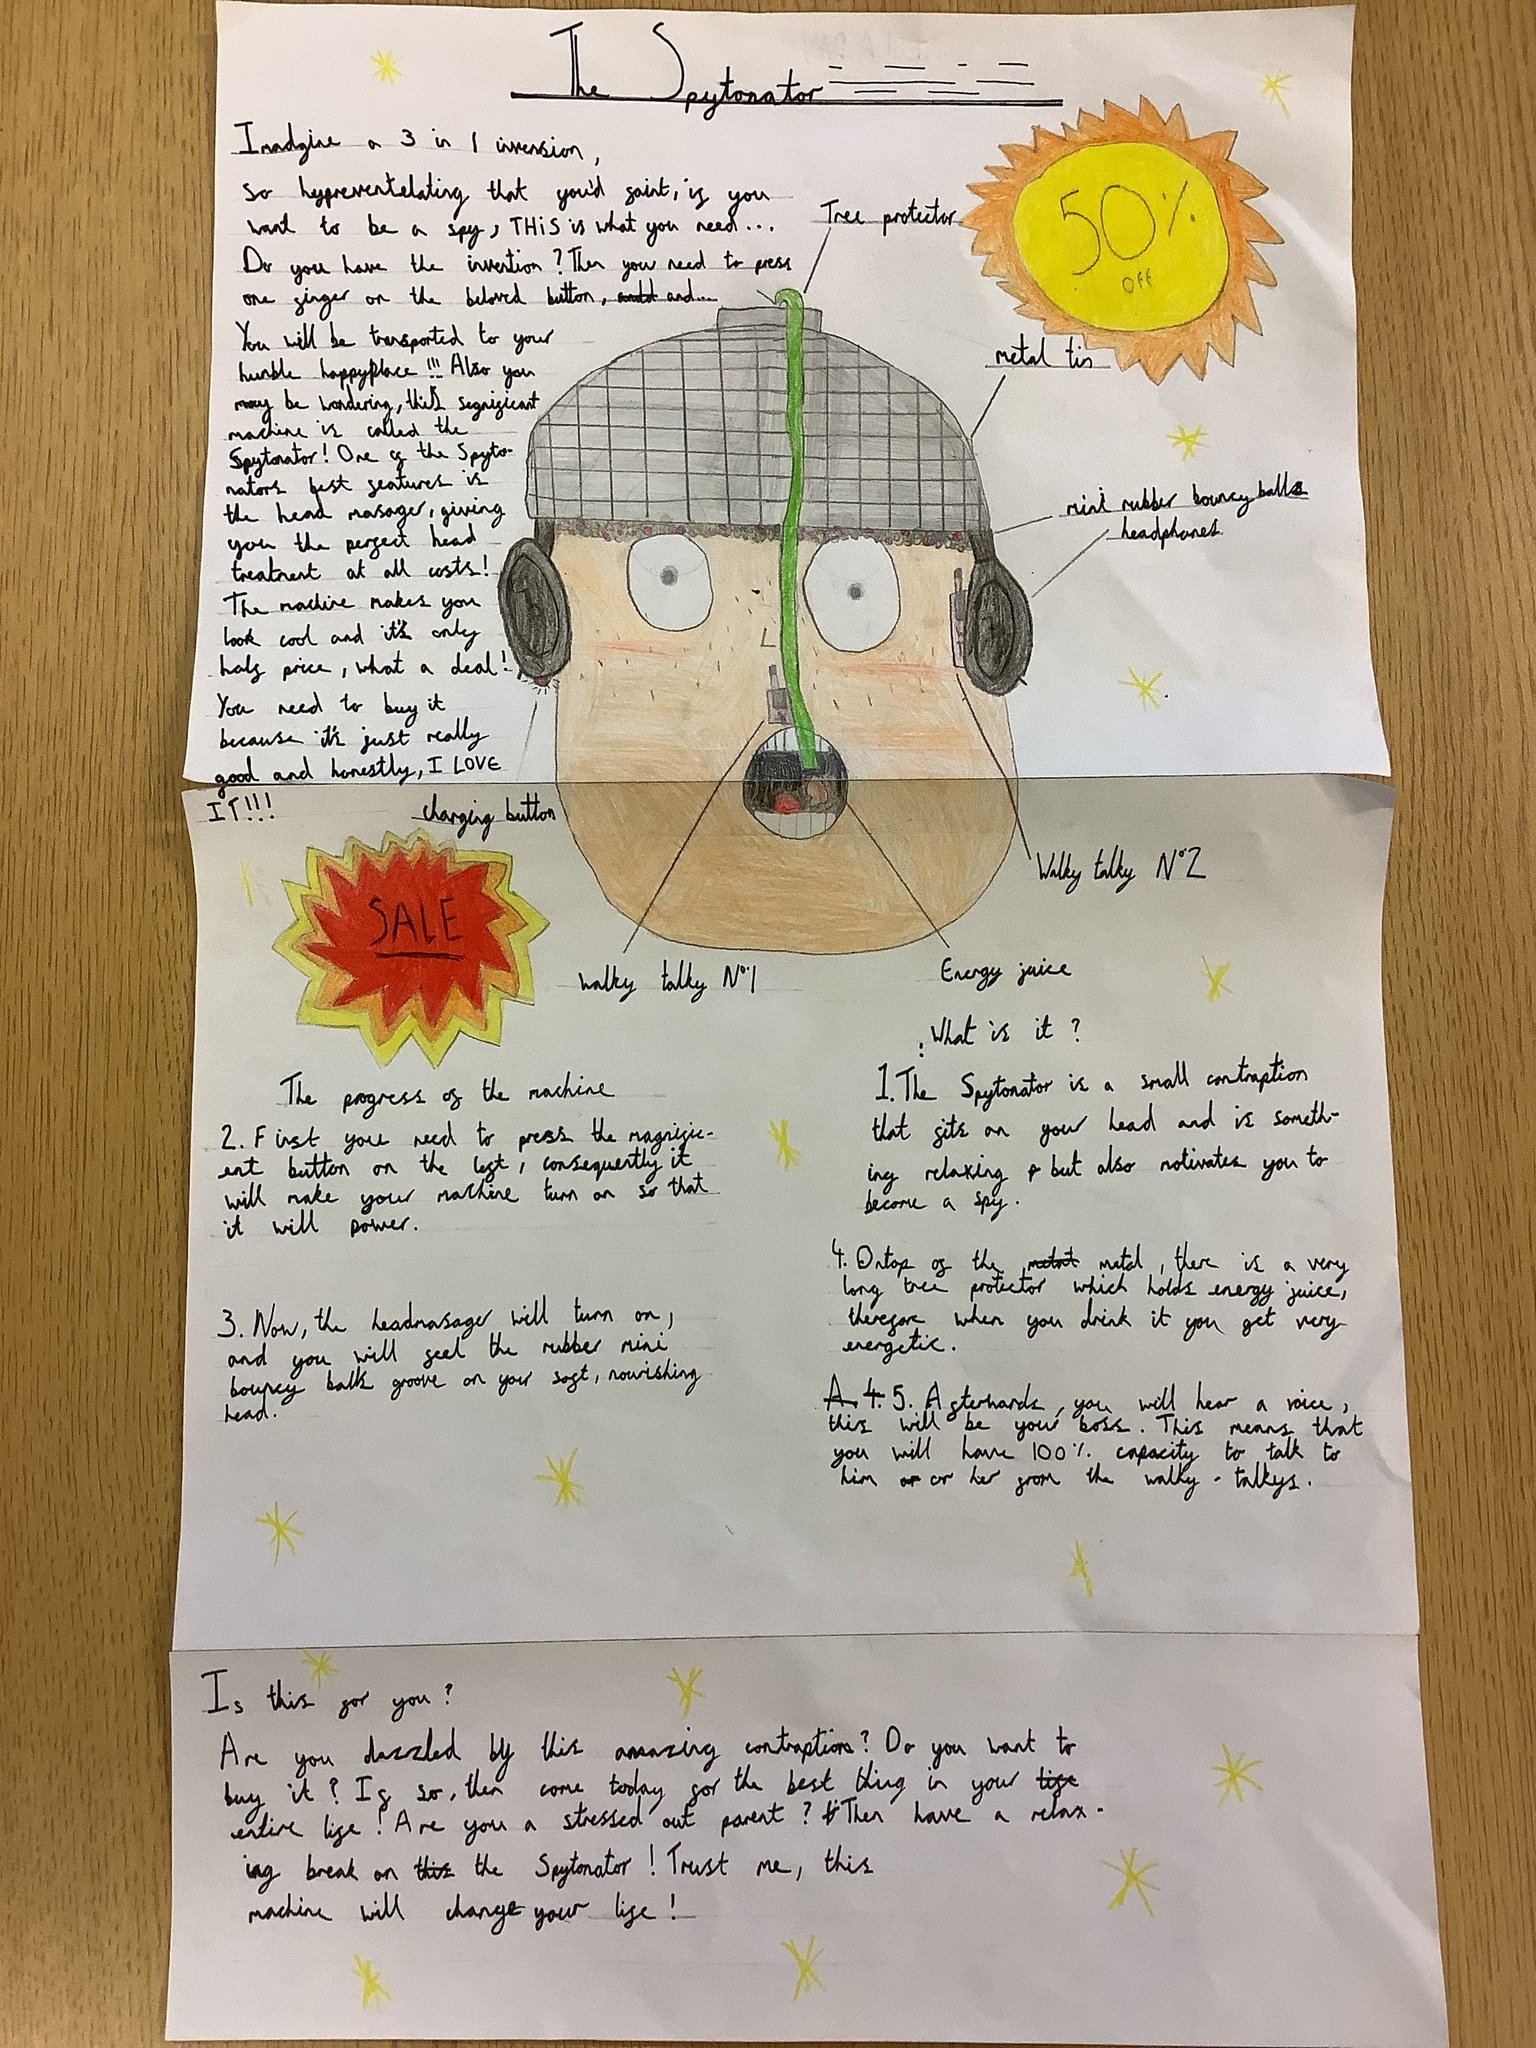 The Spytonator
Imadgine a 3 in 1 invension,
so hypreventelating that you'd faint, if you
want to be a spy, THiS is what you need...
Do you have the invention? Then you need to press
one finger on the beloved button, and...
You will be transported to your
humble happyplace !!! Also you
may be wondering, this segnificant
machine is called the
Spytonator! One of the Spyto-
nators best features is
the head masager, giving
you the perfect head
treatment at all costs!
The machine makes you
look cool and it's only
half price, what a deal!
You need to buy it
because it's just really
good and honestly, I LOVE
IT!!!
50%
off
Tree protector
metal tin
mini rubber bouncy balls
headphones
charging button
SALE
Walky talky Nº1
Walky talky Nº2
Energy juice
What is it?
1. The Spytonator is a small contraption
that sits on your head and is someth-
ing relaxing but also motivates you to
become a spy.
The progress of the machine
2. First you need to press the magnific-
ent button on the left, consequently it
will make your machine turn on so that
it will power.
3. Now, the headmasager will turn on,
and you will feel the rubber mini
bouncy balls groove on your soft, nourishing
head.
4. Ontop of the metal, there is a very
long tree protector which holds energy juice,
therefore when you drink it you get very
energetic.
5. Afterwards, you will hear a voice,
this will be your boss. This means that
you will have 100% capacity to talk to
him or her from the walky-talkys.
Is this for you?
Are you dazzled by this amazing contraption? Do you want to
buy it? If so, then come today for the best thing in your
entire life! Are you a stressed out parent? Then have a relax-
ing break on the Spytonator! Trust me, this
machine will change your life!